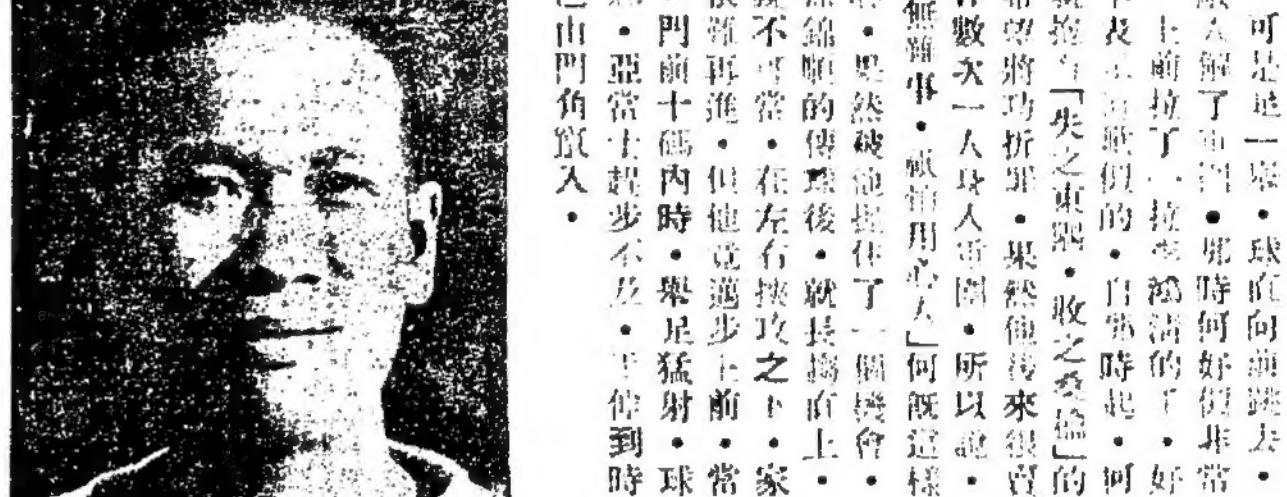 可是這一來・球直向前跳去・
解了重圍・那時何好似非常
上前拉了一拉李鴻清的手・好
表示 似的・自那時起・何
抱着「失之東隅・收之桑榆」的
希望將功折罪・果然他後來很賣
數次一人身入重圍・所以說・
無難事・祇怕用心人」何既這樣
・果然被他捉住了一個機會・
錦順的傳球後・就長搗直上・
不可當・在左右挾攻之下・家
難再進・但他竟邁步上前・當
門前十碼內時・舉足猛射・球
・亞當士起步不及・手伸到時
已由門角竄入・